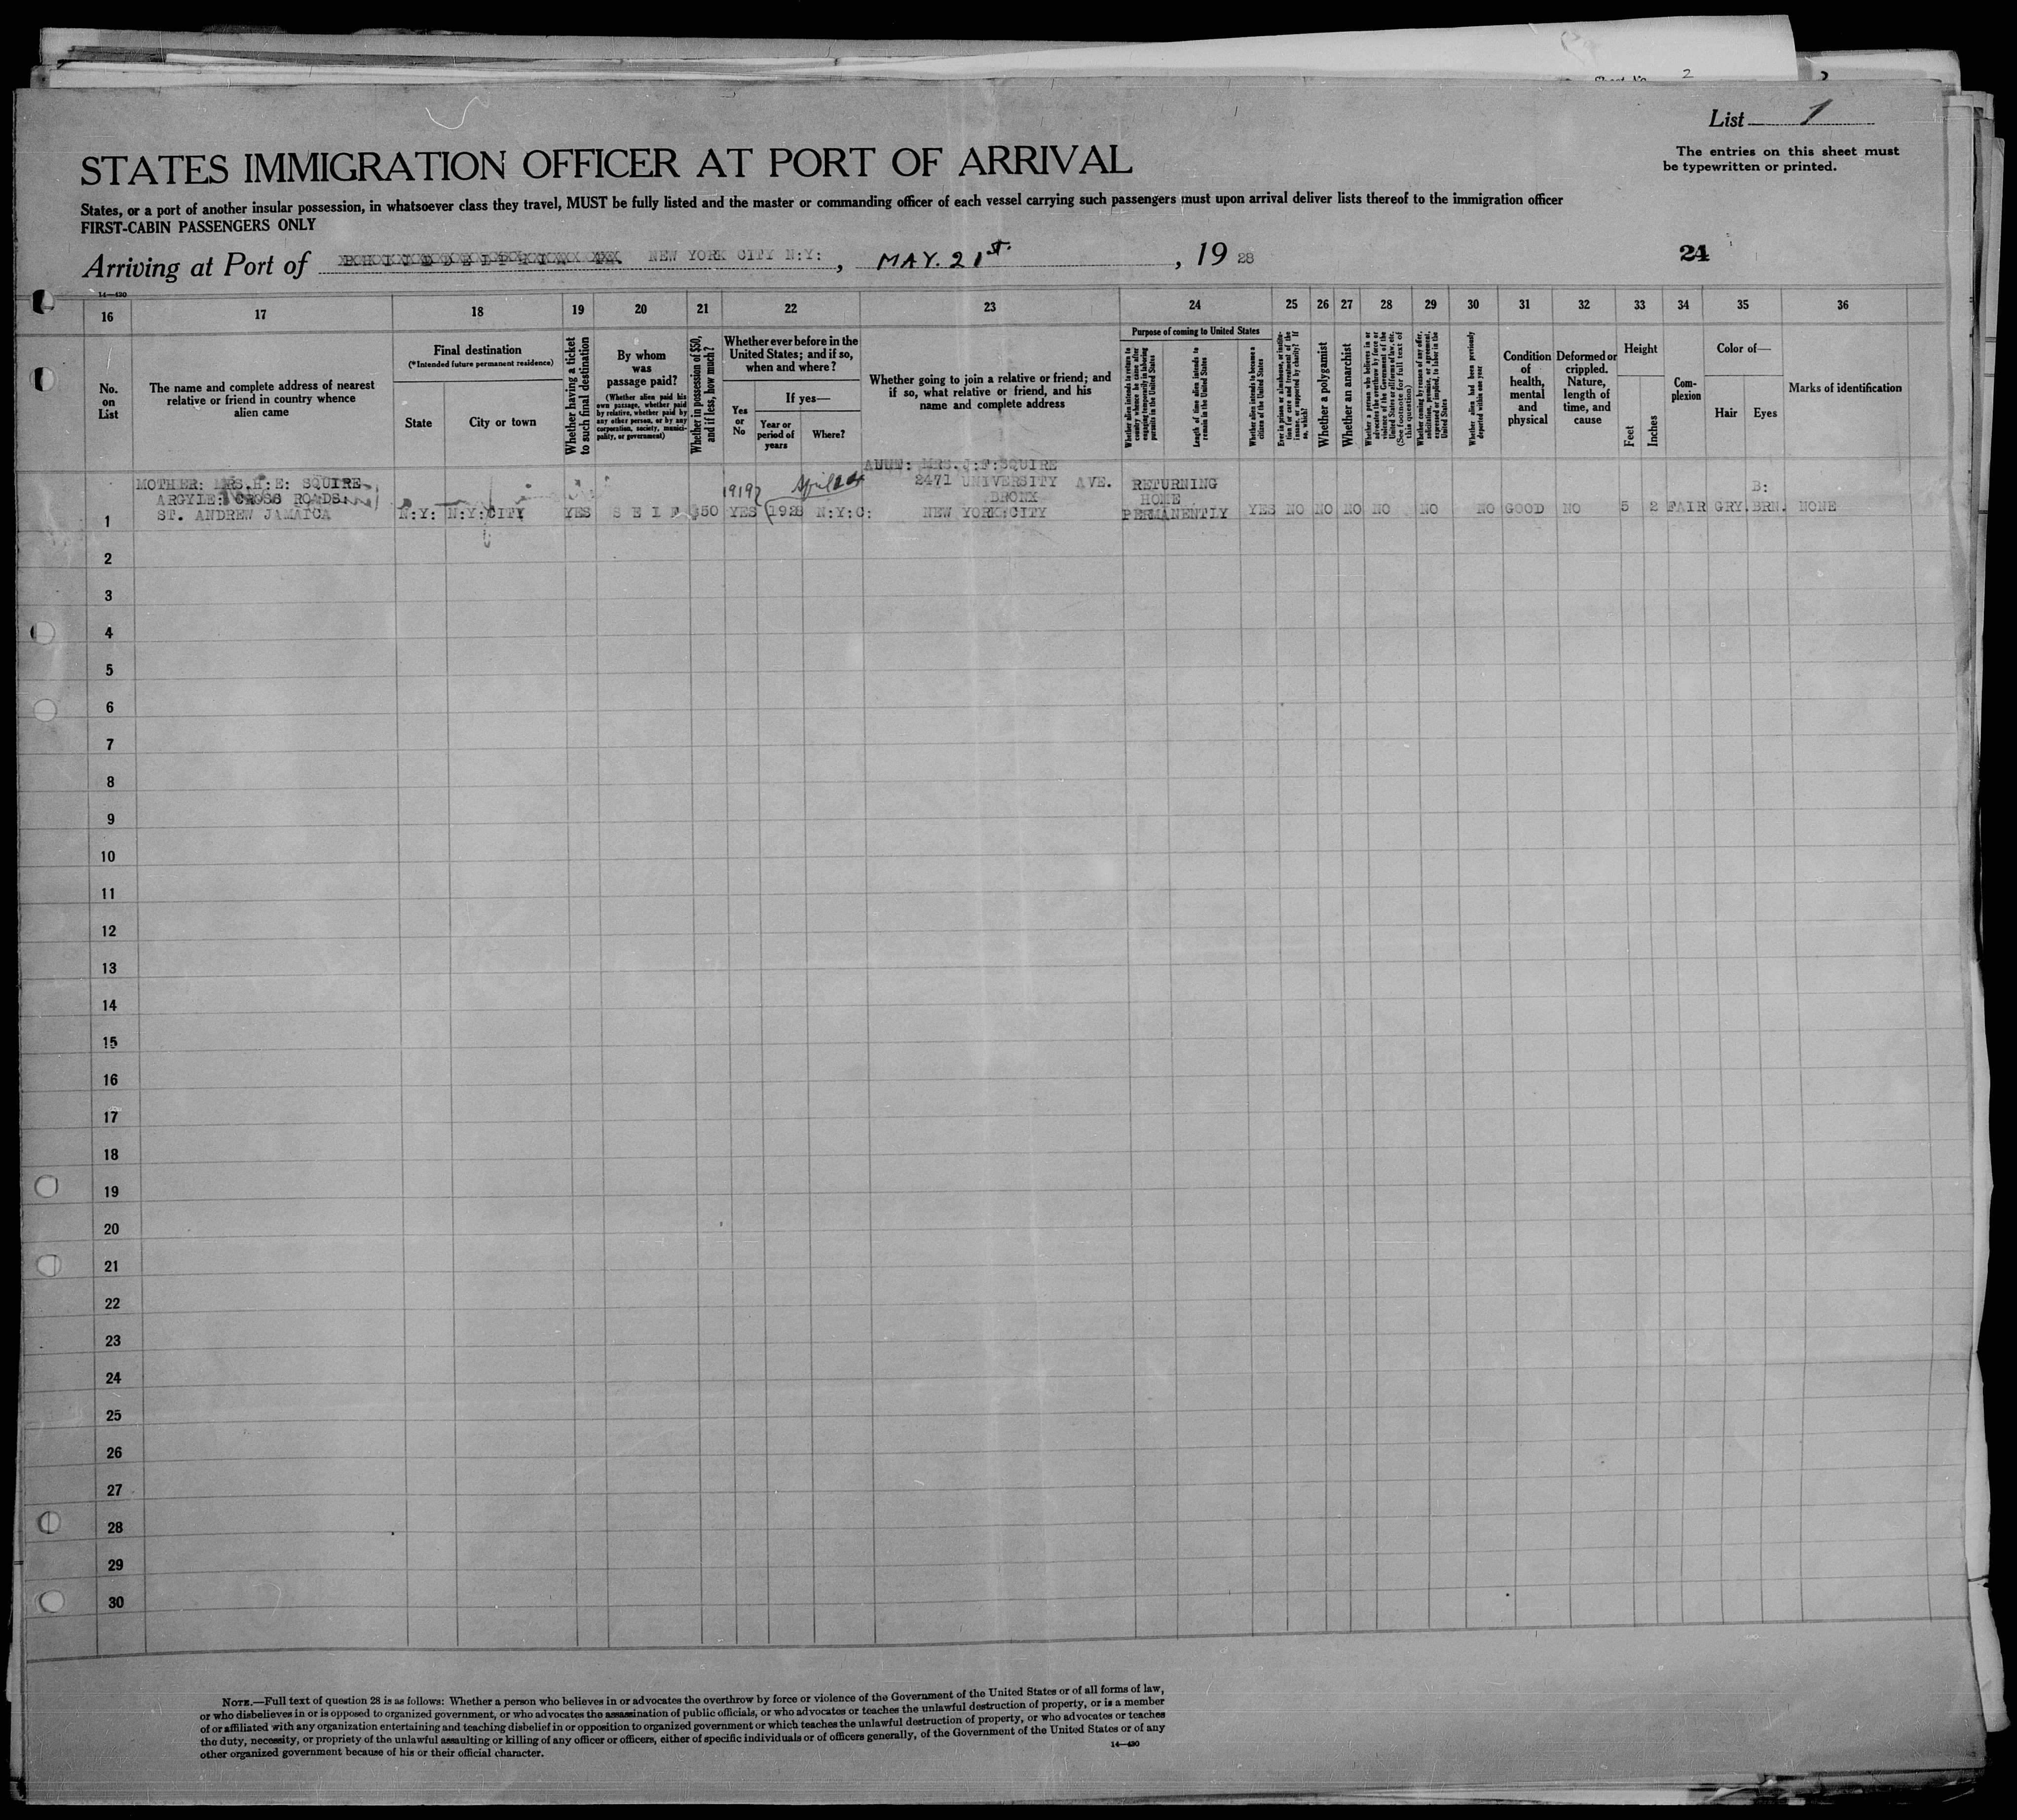 List 1
The entries on this sheet must
be typewritten or printed.
STATES IMMIGRATION OFFICER AT PORT OF ARRIVAL
States, or a port of another insular possession, in whatsoever class they travel, MUST be fully listed and the master or commanding officer of each vessel carrying such passengers must upon arrival deliver lists thereof to the immigration officer
FIRST-CABIN PASSENGERS ONLY
Arriving at Port of NEW YORK CITY N:Y: , MAY. 21st. , 19 28
24
14—430
16 17 18 19 20 21 22 23 24 25 26 27 28 29 30 31 32 33 34 35 36
No. on List
The name and complete address of nearest relative or friend in country whence alien came
Final destination
(*Intended future permanent residence)
State
City or town
Whether having a ticket to such final destination
By whom was passage paid?
(Whether alien paid his own passage, whether paid by relative, whether paid by any other person, or by any corporation, society, municipality, or government)
Whether in possession of $50, and if less, how much?
Whether ever before in the United States; and if so, when and where?
Yes or No
If yes—
Year or period of years
Where?
Whether going to join a relative or friend; and if so, what relative or friend, and his name and complete address
Purpose of coming to United States
Whether alien intends to return to country whence he came after engaging temporarily in laboring pursuits in the United States
Length of time alien intends to remain in the United States
Whether alien intends to become a citizen of the United States
Ever in prison or almshouse, or institution for care and treatment of the insane, or supported by charity? If so, which?
Whether a polygamist
Whether an anarchist
Whether a person who believes in or advocates the overthrow by force or violence of the Government of the United States or all forms of law, etc. (See footnote for full text of this question)
Whether coming by reason of any offer, solicitation, promise, or agreement, expressed or implied, to labor in the United States
Whether alien had been previously deported within one year
Condition of health, mental and physical
Deformed or crippled. Nature, length of time, and cause
Height
Feet
Inches
Com-plexion
Color of—
Hair
Eyes
Marks of identification
MOTHER: MRS.H:E: SQUIRE
ARGYLE: CROSS ROADS
ST. ANDREW JAMAICA
1 N:Y: N:Y:CITY YES S E L F $50 YES 1919 1928 April N:Y:C:
AUNT: MRS.J:F:SQUIRE
2471 UNIVERSITY AVE.
BRONX
NEW YORK CITY
RETURNING
HOME
PERMANENTLY
YES NO NO NO NO NO NO GOOD NO 5 2 FAIR GRY. B: BRN. NONE
2
3
4
5
6
7
8
9
10
11
12
13
14
15
16
17
18
19
20
21
22
23
24
25
26
27
28
29
30
NOTE.—Full text of question 28 is as follows: Whether a person who believes in or advocates the overthrow by force or violence of the Government of the United States or of all forms of law,
or who disbelieves in or is opposed to organized government, or who advocates the assassination of public officials, or who advocates or teaches the unlawful destruction of property, or is a member
of or affiliated with any organization entertaining and teaching disbelief in or opposition to organized government or which teaches the unlawful destruction of property, or who advocates or teaches
the duty, necessity, or propriety of the unlawful assaulting or killing of any officer or officers, either of specific individuals or of officers generally, of the Government of the United States or of any
other organized government because of his or their official character.
14—430